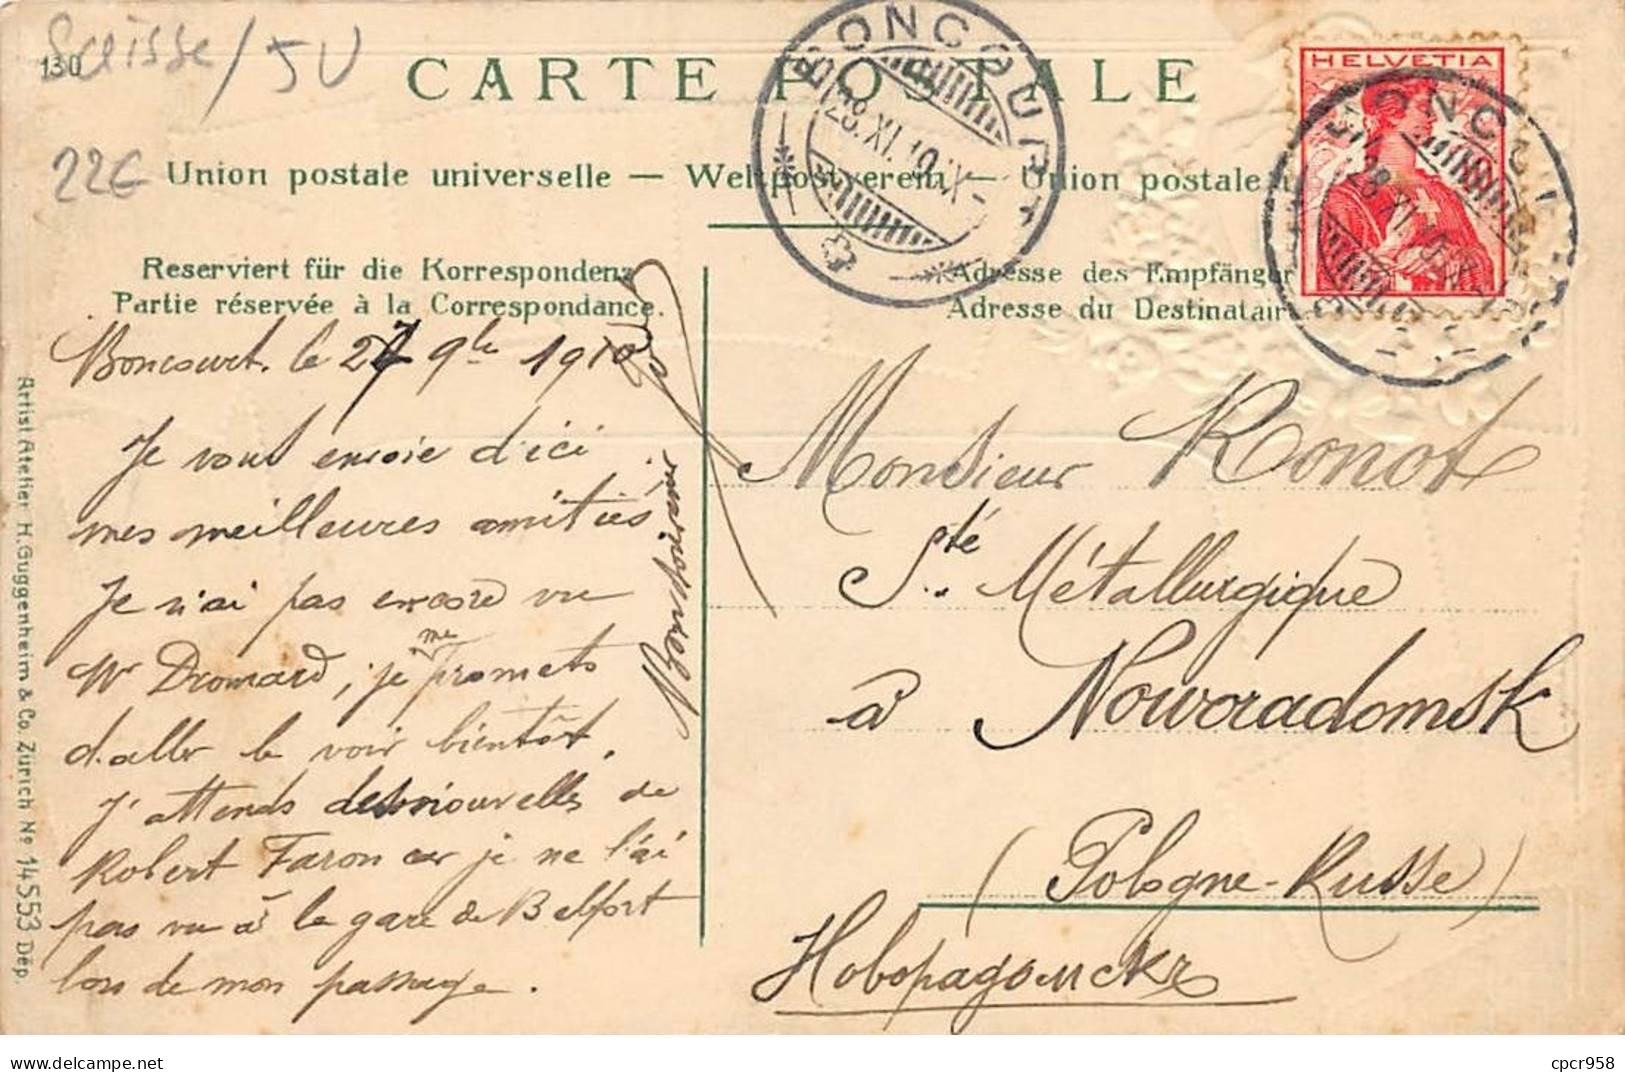 Suisse / 5U
130
22€
CARTE POSTALE
Union postale universelle — Weltpostverein — Union postale
BONCOURT
28.XI.10.IX-
HELVETIA
BONCOURT
28.XI.10.
Reserviert für die Korrespondenz
Partie réservée à la Correspondance.
Adresse des Empfänger
Adresse du Destinatair
Boncourt. le 27 9bre 1910
Je vous envoie d'ici
mes meilleures amitiés.
Je n'ai pas encore vu
Mr Dromard, je me promets
d'aller le voir bientôt.
J'attends des nouvelles de
Robert Faron car je ne l'ai
pas vu à la gare de Belfort
lors de mon passage.
Monsieur Ronot
Sté Métallurgique
à Noworadomsk
(Pologne-Russe)
Новорадомскъ
Artist Atelier H. Guggenheim & Co. Zürich No 14553 Dép.
cpcr958